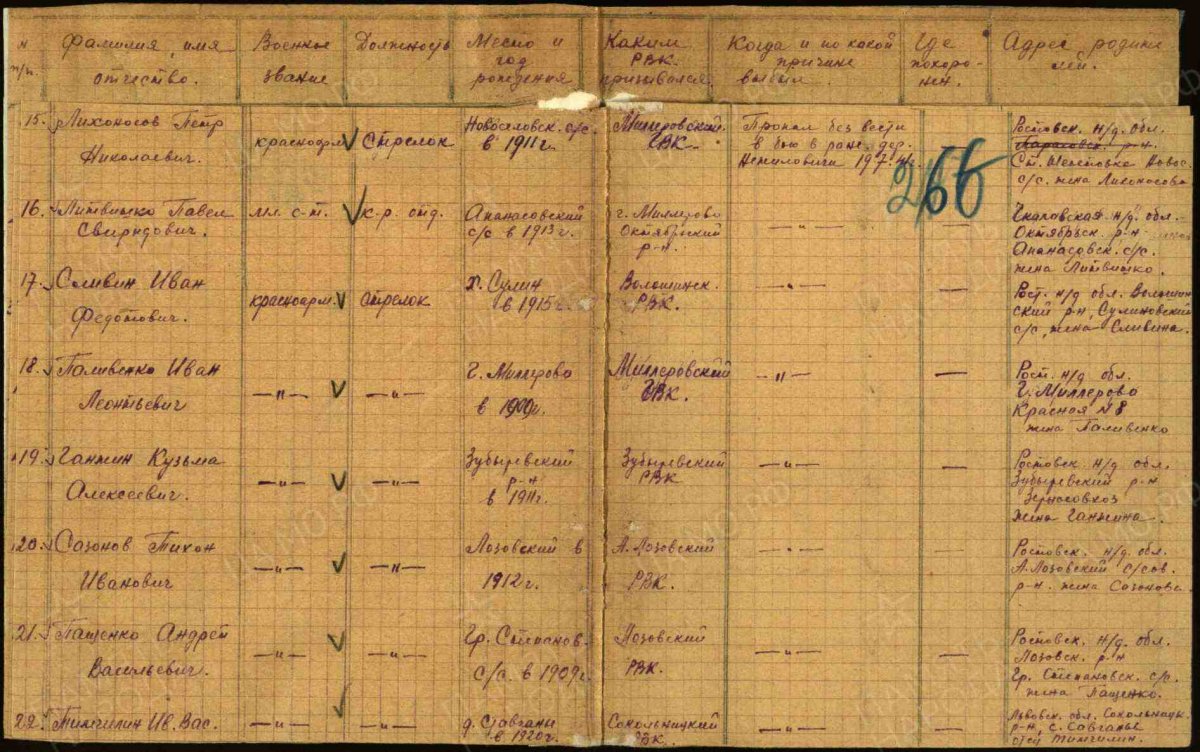 № п/п. Фамилия, имя отчество. Военные звание Должность Место и год рождения Каким РВК. призывался. Когда и по какой причине выбыл. Где похоро- нен. Адрес родите лей.
15. Лихоносов Петр Николаевич. красноарм. стрелок Новоселовск. с/с. в 1911 г. Миллеровский РВК. Пропал без вести в бою в район. дер. 19.7.41г. Ростовск. н/д. обл. Тарасовск. р-н Ст. Шептовка Новос. с/с. жена Лихоносова
266
16. Литвишко Павел Свиридович. мл. с-т. к-р. отд. Апанасовский с/с в 1913 г. г. Миллерово Октябрьский р-н. — " — — Чкаловская н/д. обл. Октябрьск. р-н Апанасовск. с/с. жена Литвишко.
17. Сливин Иван Федотович. красноарм. стрелок х. Сулин в 1915 г. Волошинск. РВК. — " — — Рост. н/д обл. Волошин ский р-н, Сулиновский с/с, жена Сливина.
18. Паливенко Иван Леонтьевич — " — — " — г. Миллерово в 1909г. Миллеровский РВК. — " — — Рост. н/д обл. г. Миллерово Красная №8 жена Паливенко
19. Ганжин Кузьма Алексеевич. — " — — " — Зубыревский р-н в 1911г. Зубыревский РВК — " — — Ростовск. н/д обл. Зубыревский р-н Зерносовхоз жена Ганжина.
20. Сазонов Тихон Иванович — " — — " — Лозовский в 1912 г. А. Лозовский РВК. — " — — Ростовск. н/д. обл. А. Лозовский с/сов. р-н. жена Сазонова.
21. Пащенко Андрей Васильевич. — " — — " — Гр. Степанов. с/с. в 1909г. Лозовский РВК. — " — — Ростовск. н/д. обл. Лозовск. р-н Гр. Степановск. с/с. жена Пащенко.
22. Тимчилин Ив. Вас. — " — — " — д. Савганы в 1920 г. Сокольницкий РВК. — " — — Львовск. обл. Сокольницк. р-н, с. Савганы Тимчилин.